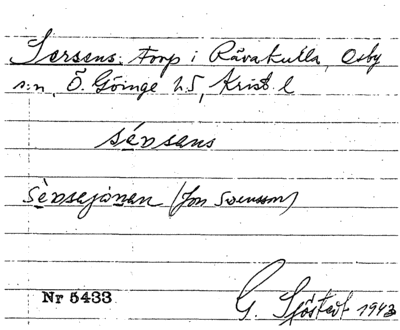 Sersens: torp i Råvakulla, Osby
s:n, Ö. Göinge hd, Krist. l
sévsens
sèvsejónen (Jon Svensson)
Nr 5433
G. Sjöstedt 1943